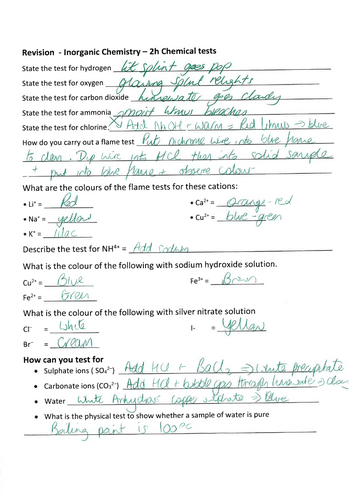 Revision - Inorganic Chemistry – 2h Chemical tests
State the test for hydrogen lit splint goes pop
State the test for oxygen glowing splint relights
State the test for carbon dioxide limewater goes cloudy
State the test for ammonia moist litmus bleaches
State the test for chlorine. Add NaOH + warm = Red litmus ⇒ blue
How do you carry out a flame test Put nichrome wire into blue flame
to clean. Dip wire into HCl then into solid sample
+ put into blue flame + observe colour
What are the colours of the flame tests for these cations:
• Li⁺ = Red • Ca²⁺ = Orange - red
• Na⁺ = yellow • Cu²⁺ = blue - green
• K⁺ = lilac
Describe the test for NH⁴⁺ = Add
What is the colour of the following with sodium hydroxide solution.
Cu²⁺ = Blue Fe³⁺ = Brown
Fe²⁺ = Green
What is the colour of the following with silver nitrate solution
Cl⁻ = White I- = Yellow
Br⁻ = Cream
How can you test for
• Sulphate ions ( SO₄²⁻) Add HCl + BaCl₂ ⇒ White precipitate
• Carbonate ions (CO₃²⁻) Add HCl + bubble gas through limewater ⇒ Cloudy
• Water White Anhydrous copper sulphate ⇒ Blue
• What is the physical test to show whether a sample of water is pure
Boiling point is 100°C